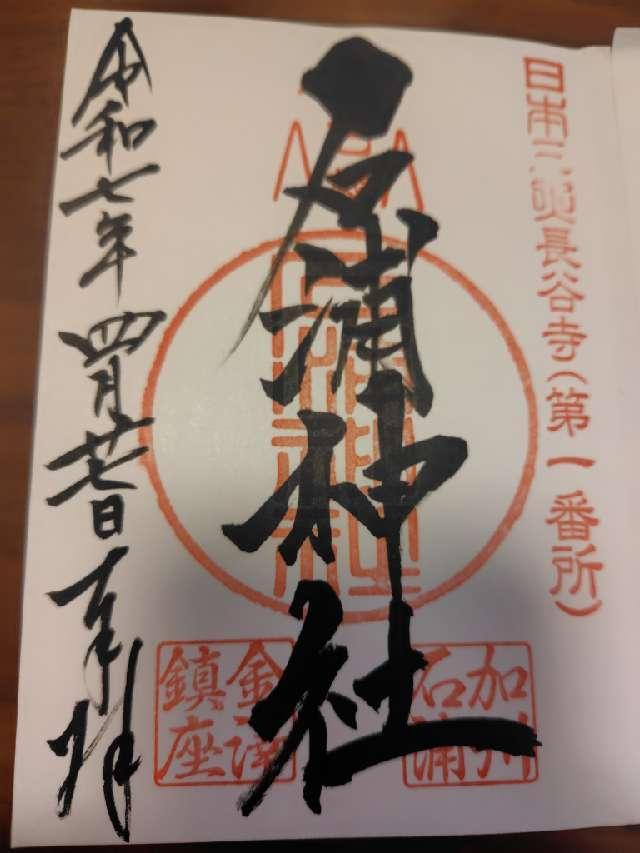 日本三 長谷寺(第一番所)
加州
石浦
石浦神社
金澤
鎮座
令和七年四月廿七日奉拝